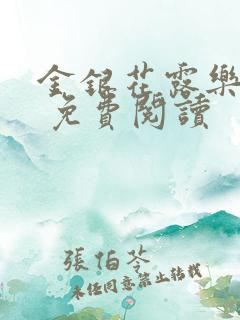 金銀花露樂
免費閱讀
張伯苓
未经同意禁止转载